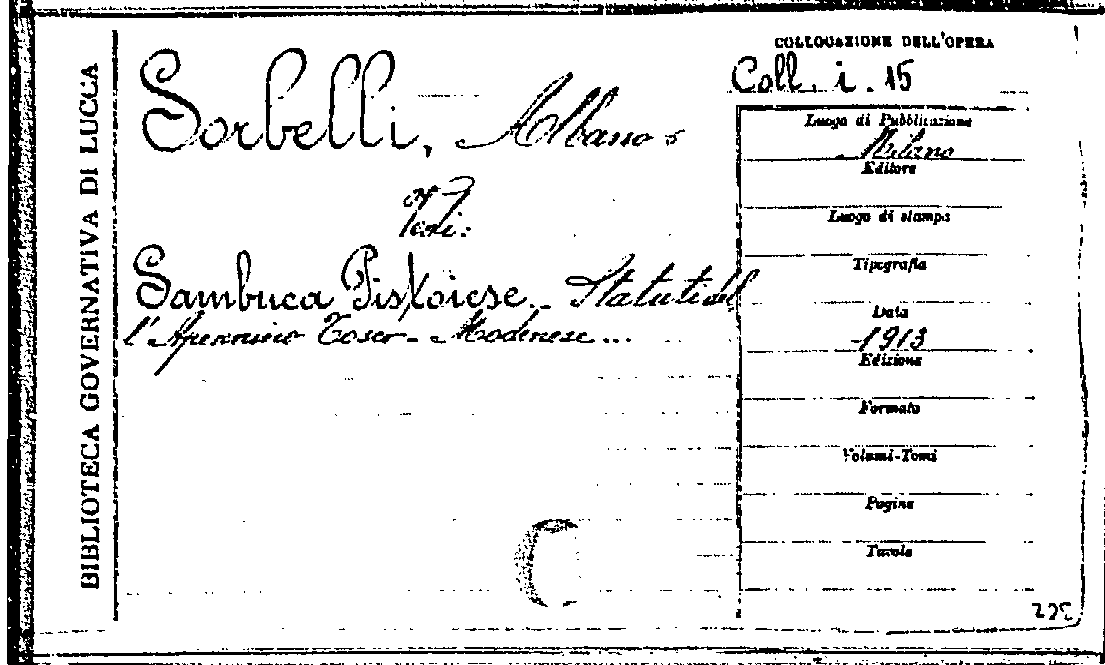 BIBLIOTECA GOVERNATIVA DI LUCCA
COLLOCAZIONE DELL'OPERA
Coll. i. 15
Sorbelli, Albano
Vedi:
Sambuca Pistoiese. - Statuti del
l'Apennino Tosco-Modenese...
Luogo di Pubblicazione
Milano
Editore
Luogo di stampa
Tipografia
Data
1913
Edizione
Formato
Volumi-Tomi
Pagine
Tavole